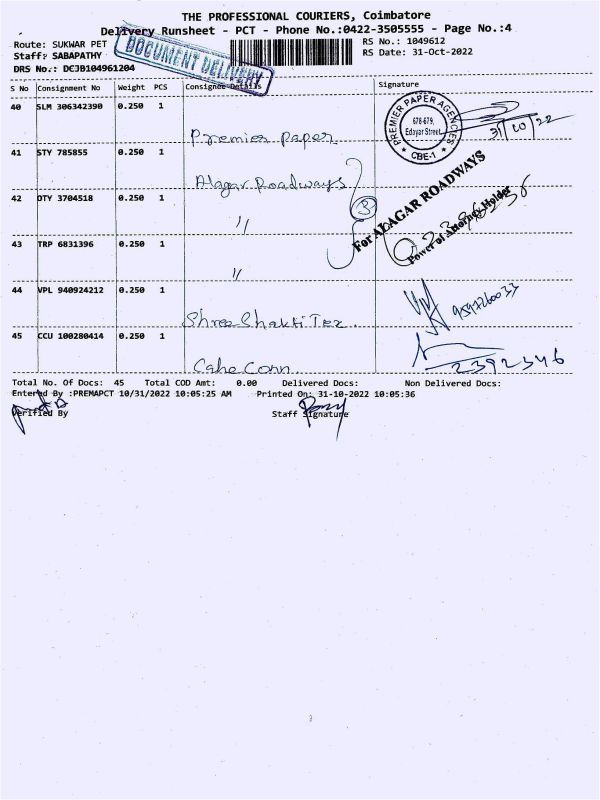 THE PROFESSIONAL COURIERS, Coimbatore
Delivery Runsheet - PCT - Phone No.:0422-3505555 - Page No.:4
Route: SUKWAR PET
RS No.: 1049612
Staff: SABAPATHY
RS Date: 31-Oct-2022
DRS No.: DCJB104961204
DOCUMENT DELIVERY
S No Consignment No Weight PCS Consignee Details Signature
40 SLM 306342390 0.250 1
Premier Paper
PREMIER PAPER AGENCIES
678-679,
Edayar Street,
CBE-1
31/10/22
41 STY 785855 0.250 1
Alagar Roadways
42 DTY 3704518 0.250 1
"
3
For ALAGAR ROADWAYS
Power of Attorney Holder
43 TRP 6831396 0.250 1
"
44 VPL 940924212 0.250 1
Shree Shakti Tex.
45 CCU 100280414 0.250 1
2392346
Total No. Of Docs: 45 Total COD Amt: 0.00 Delivered Docs: Non Delivered Docs:
Entered By :PREMAPCT 10/31/2022 10:05:25 AM Printed On: 31-10-2022 10:05:36
Verified By Staff Signature